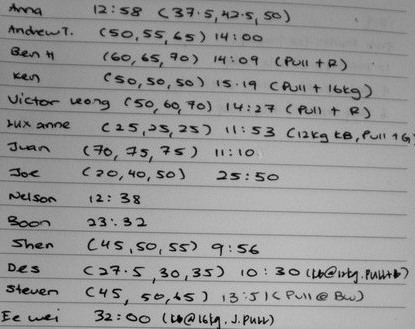 Anna 12:58 (37.5, 42.5, 50)
Andrew T. (50, 55, 65) 14:00
Ben H (60, 65, 70) 14:09 (Pull + R)
Ken (50, 50, 50) 15.19 (Pull + 16kg)
Victor Leong (50, 60, 70) 14:27 (Pull + R)
anne (25, 25, 25) 11:53 (12kg KB, Pull + G)
Juan (70, 75, 75) 11:10
Joe (20, 40, 50) 25:50
Nelson 12:38
Boon 23:32
Shen (45, 50, 55) 9:56
Des (27.5, 30, 35) 10:30
Steven (45, 50, 65) 13:51 (Pull @ BW)
Ee wei 32:00 (kb@16kg, J.Pull)